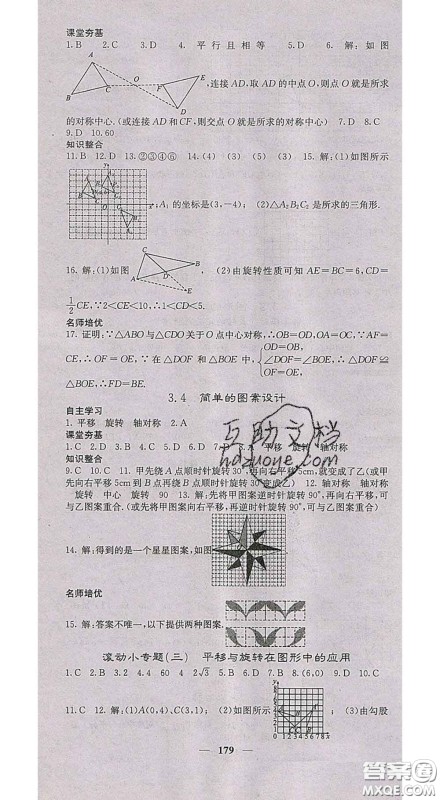 课堂夯基
1.B 2.C 3.D 4.平行且相等 5.D 6.解:如图
A
B
C
O
F
E
D
,连接AD,取AD的中点O,则点O就是所求
的对称中心.(或连接AD和CF,则交点O就是所求的对称中心) 7.D 8.C
9.D 10.60
知识整合
11.B 12.D 13.②③④⑥ 14.(4) (3) (5) (1) 15.解:(1)如图所示
;A₁的坐标是(3,-4); (2)△A₂B₂C₂是所求的三角形.
16.解:(1)如图
C
A
B
D
E
(2)由旋转性质可知AE=BC=6,CD=
1/2 CE,∵2<CE<10,∴1<CD<5.
名师培优
17.证明:∵△ABO与△CDO关于O点中心对称,∴OB=OD,OA=OC,∵AF=
CE,∴OF=OE,∵在△DOF和△BOE中,{OB=OD, ∠DOF=∠BOE, OF=OE, ∴△DOF≌
△BOE,∴FD=BE.
3.4 简单的图案设计
自主学习
1.平移 旋转 轴对称 2.A
课堂夯基
1.D 2.C 3.D 4.B 5.C 平移 旋转 轴对称
知识整合
9.C 10.C 11.甲先绕A点顺时针旋转30°,再向右平移5cm,就变成了乙(或甲
先向右平移5cm到B点再绕B点顺时针旋转30°,就成了乙) 12.轴对称 轴对称
旋转 中心 旋转 90 13.解:先将甲图案逆时针旋转90°,再向右平移,可
与乙图案重合.(或先将甲图案向右平移,再逆时针旋转90°,可与乙图案重合)
14.解:得到的是一个星星图案,如图
名师培优
15.解:答案不唯一,以下提供两种图案.
滚动小专题(三) 平移与旋转在图形中的应用
1.C 2.B 3.2 4.4 60 4 2√3 5.B 6.D 7.B 8.(6,0) 9.D 10.C
11.C 12.解:(1)A(0,4),C(3,1); (2)如图所示
0 1 2 3 4 5 6 7 8
; (3)由勾股
179
互助文档
hdzuoye.com
答案圈
MXQE.COM